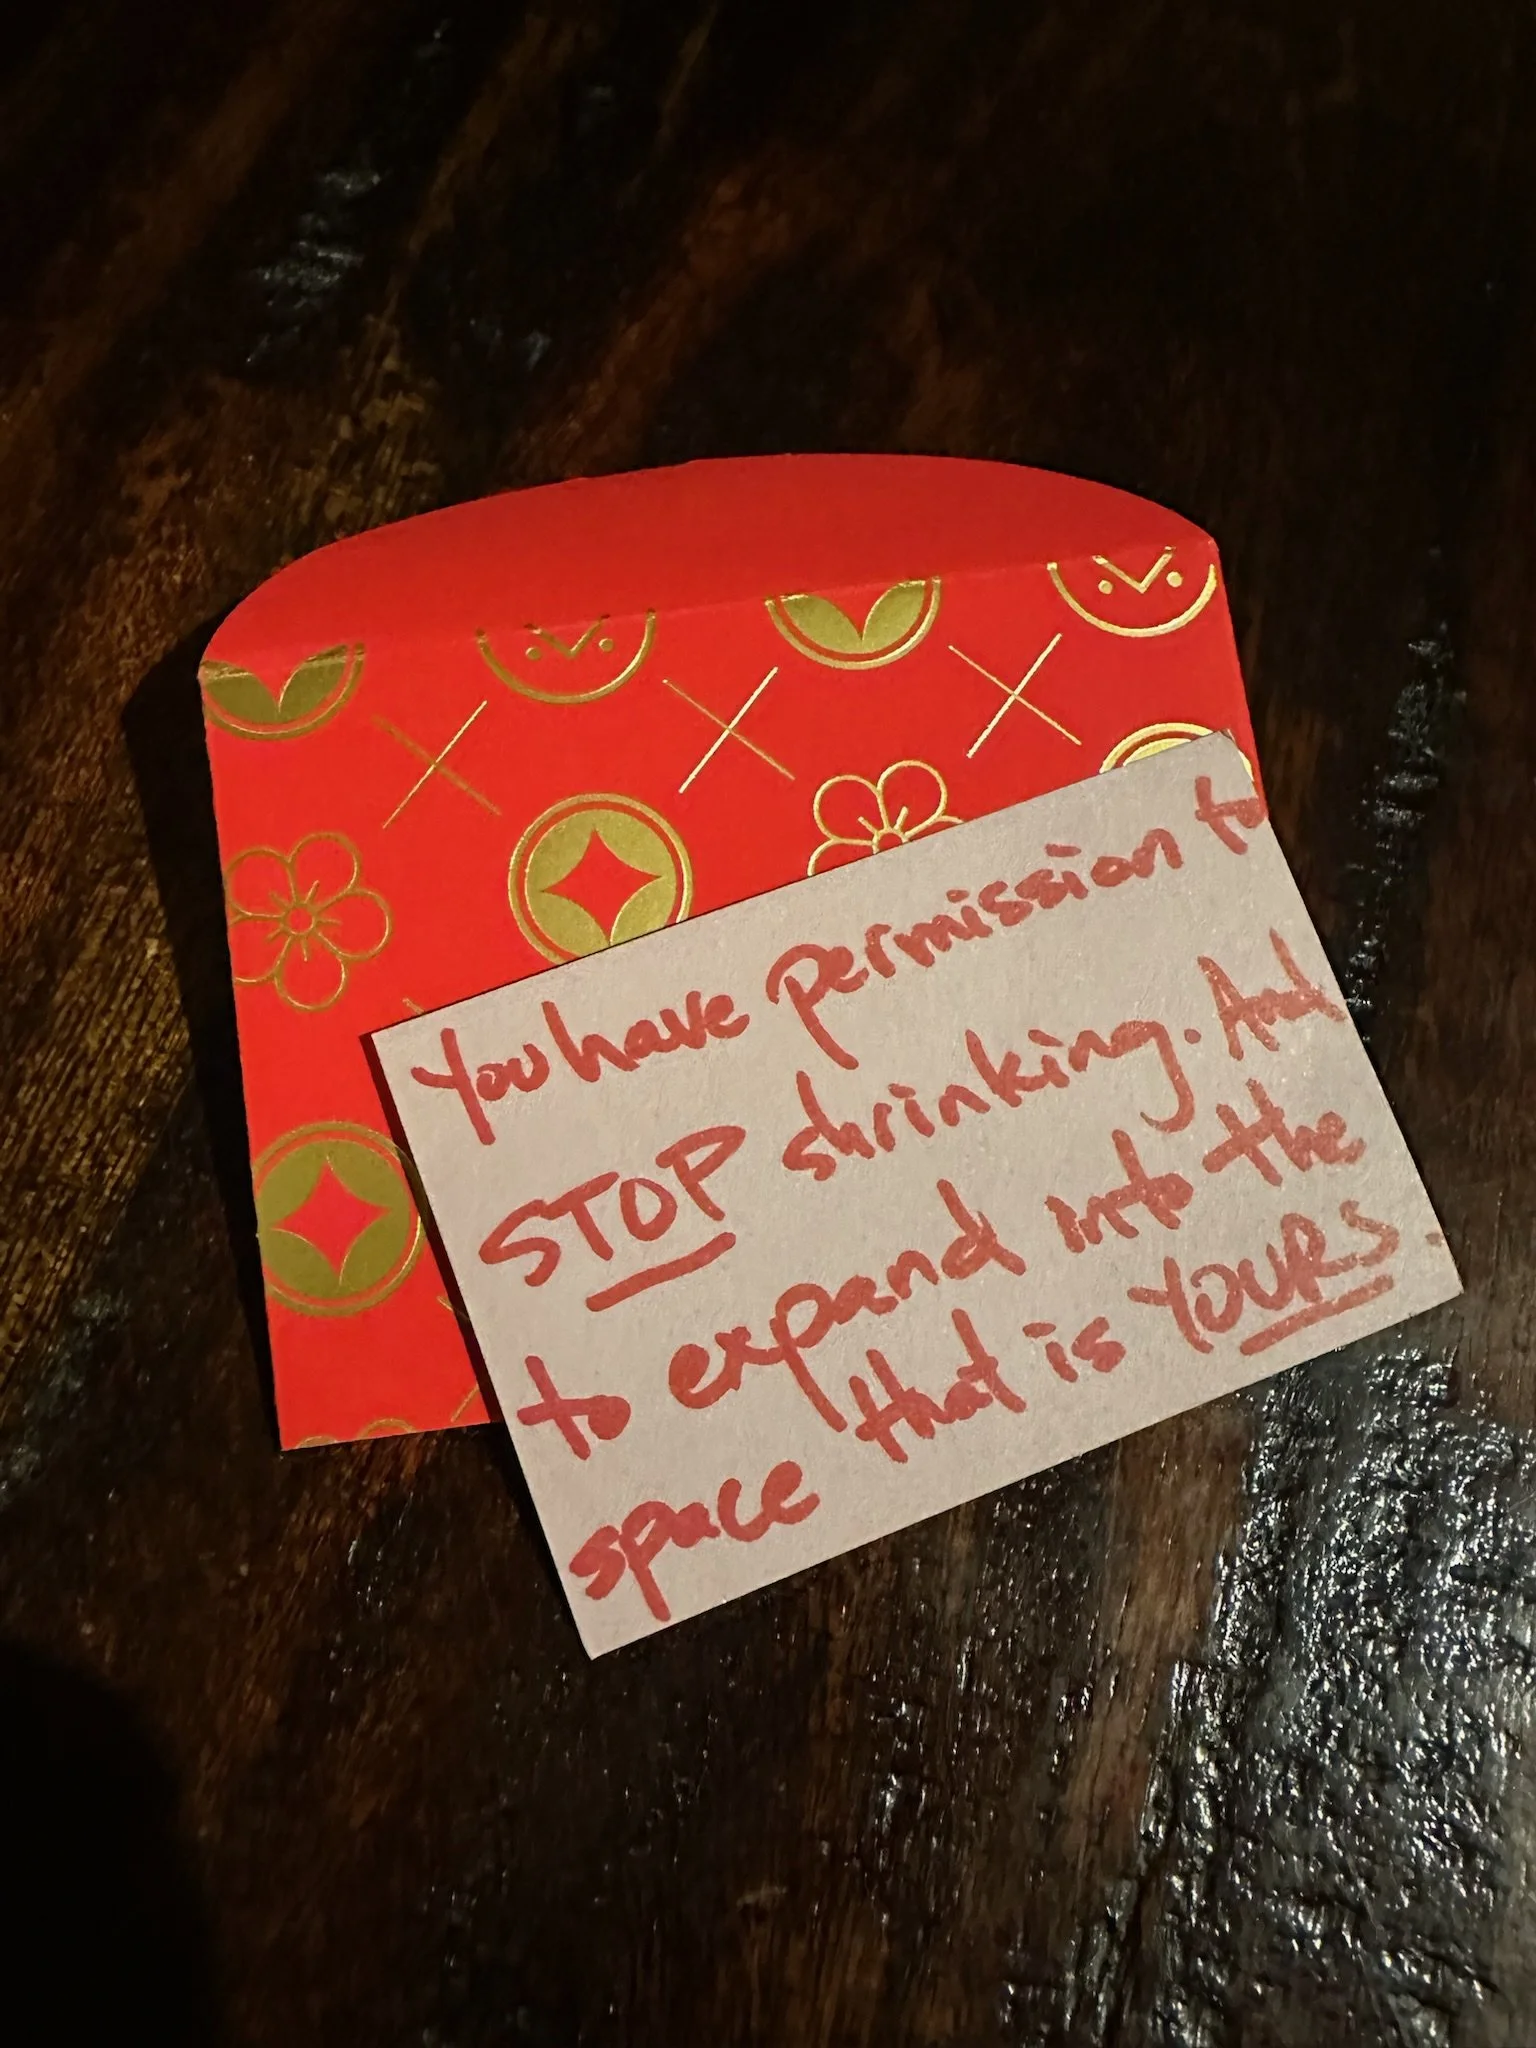 You have permission to
STOP shrinking. And
to expand into the
space that is YOURS.